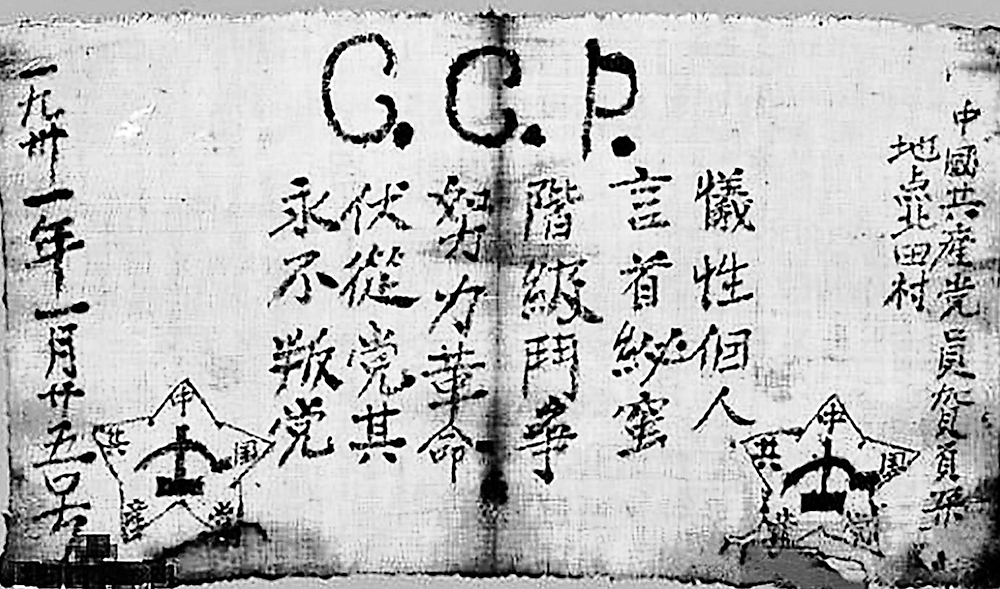 C.C.P.
中國共産党員賀頁朵
地點北田村
犠性個人
言首秘蜜
階級鬥爭
努力革命
伏從党其
永不叛党
一九卅一年一月廿五号
中国共産党
中国共